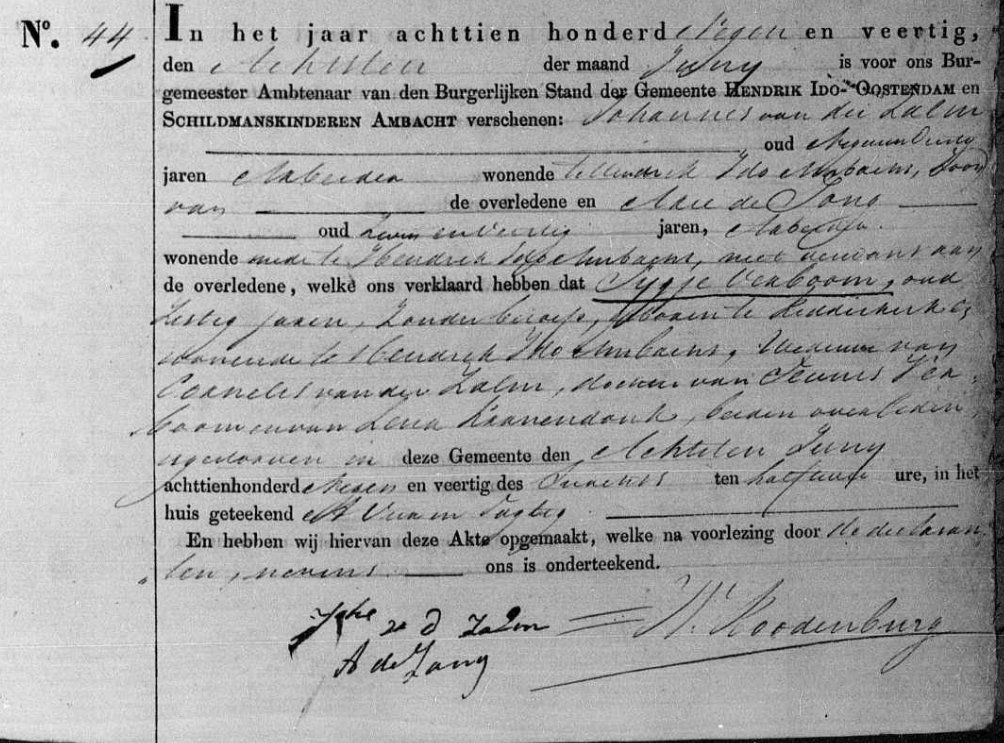 No. 44 In het jaar achttien honderd Negen en veertig,
den Achtsten der maand Juny is voor ons Bur-
gemeester Ambtenaar van den Burgerlijken Stand der Gemeente HENDRIK IDO-OOSTENDAM en
SCHILDMANSKINDEREN AMBACHT verschenen: Johannes van der Zalm
oud Negenen
jaren Arbeider wonende te Hendrik Ido Ambacht, Zoon
van de overledene en Arie de Jong
oud Zeven en Veertig jaren, Arbeider
wonende mede te Hendrik Ido Ambacht, niet verwant aan
de overledene, welke ons verklaard hebben dat Sijgje Verboom, oud
Zestig jaren, Zonder beroep, geboren te Ridderkerk &
wonende te Hendrik Ido Ambacht, Weduwe van
Cornelis van der Zalm, dochter van Teunis Ver-
boom en van Lena Kranendonk, beiden overleden,
is in deze Gemeente den Achtsten Juny
achttienhonderd Negen en veertig des ten half ure, in het
huis geteekend A en Tagtig
En hebben wij hiervan deze Akte opgemaakt, welke na voorlezing door de declaran-
ten, nevens ons is onderteekend.
v d Zalm W. Roodenburg
A de Jong